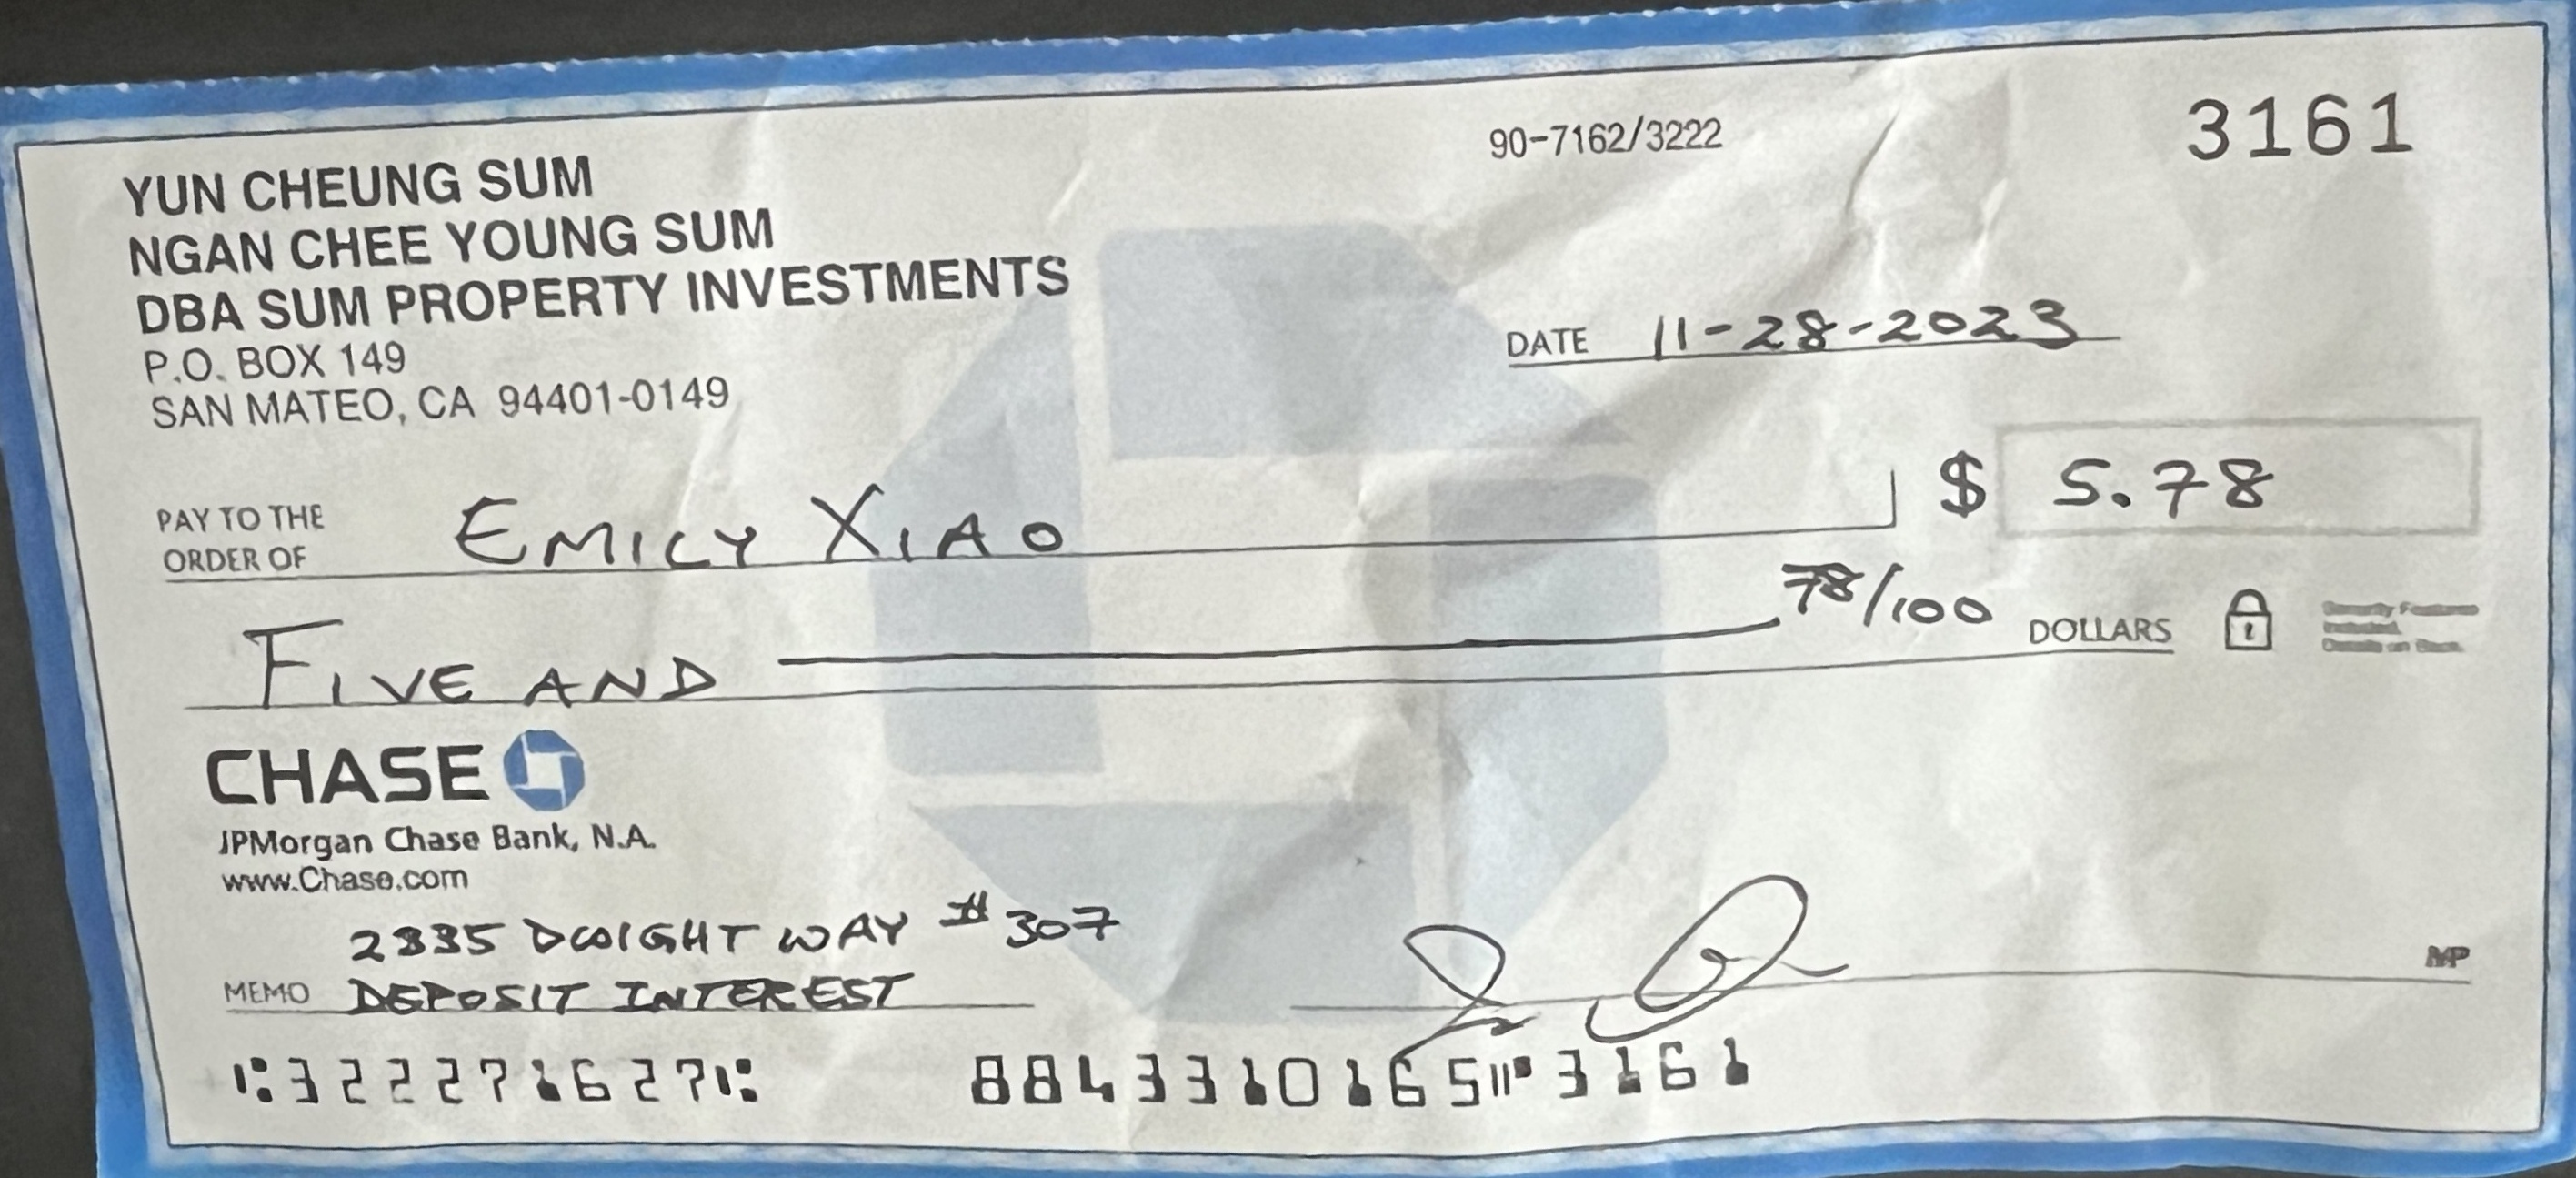 90-7162/3222
3161
YUN CHEUNG SUM
NGAN CHEE YOUNG SUM
DBA SUM PROPERTY INVESTMENTS
P.O. BOX 149
SAN MATEO, CA 94401-0149
DATE 11-28-2023
PAY TO THE
ORDER OF EMILY XIAO $ 5.78
FIVE AND 78/100 DOLLARS
Security Features
Included.
Details on Back.
CHASE
JPMorgan Chase Bank, N.A.
www.Chase.com
2335 DWIGHT WAY #307
MEMO DEPOSIT INTEREST
MP
⑆322271627⑆ 8843310165⑈3161